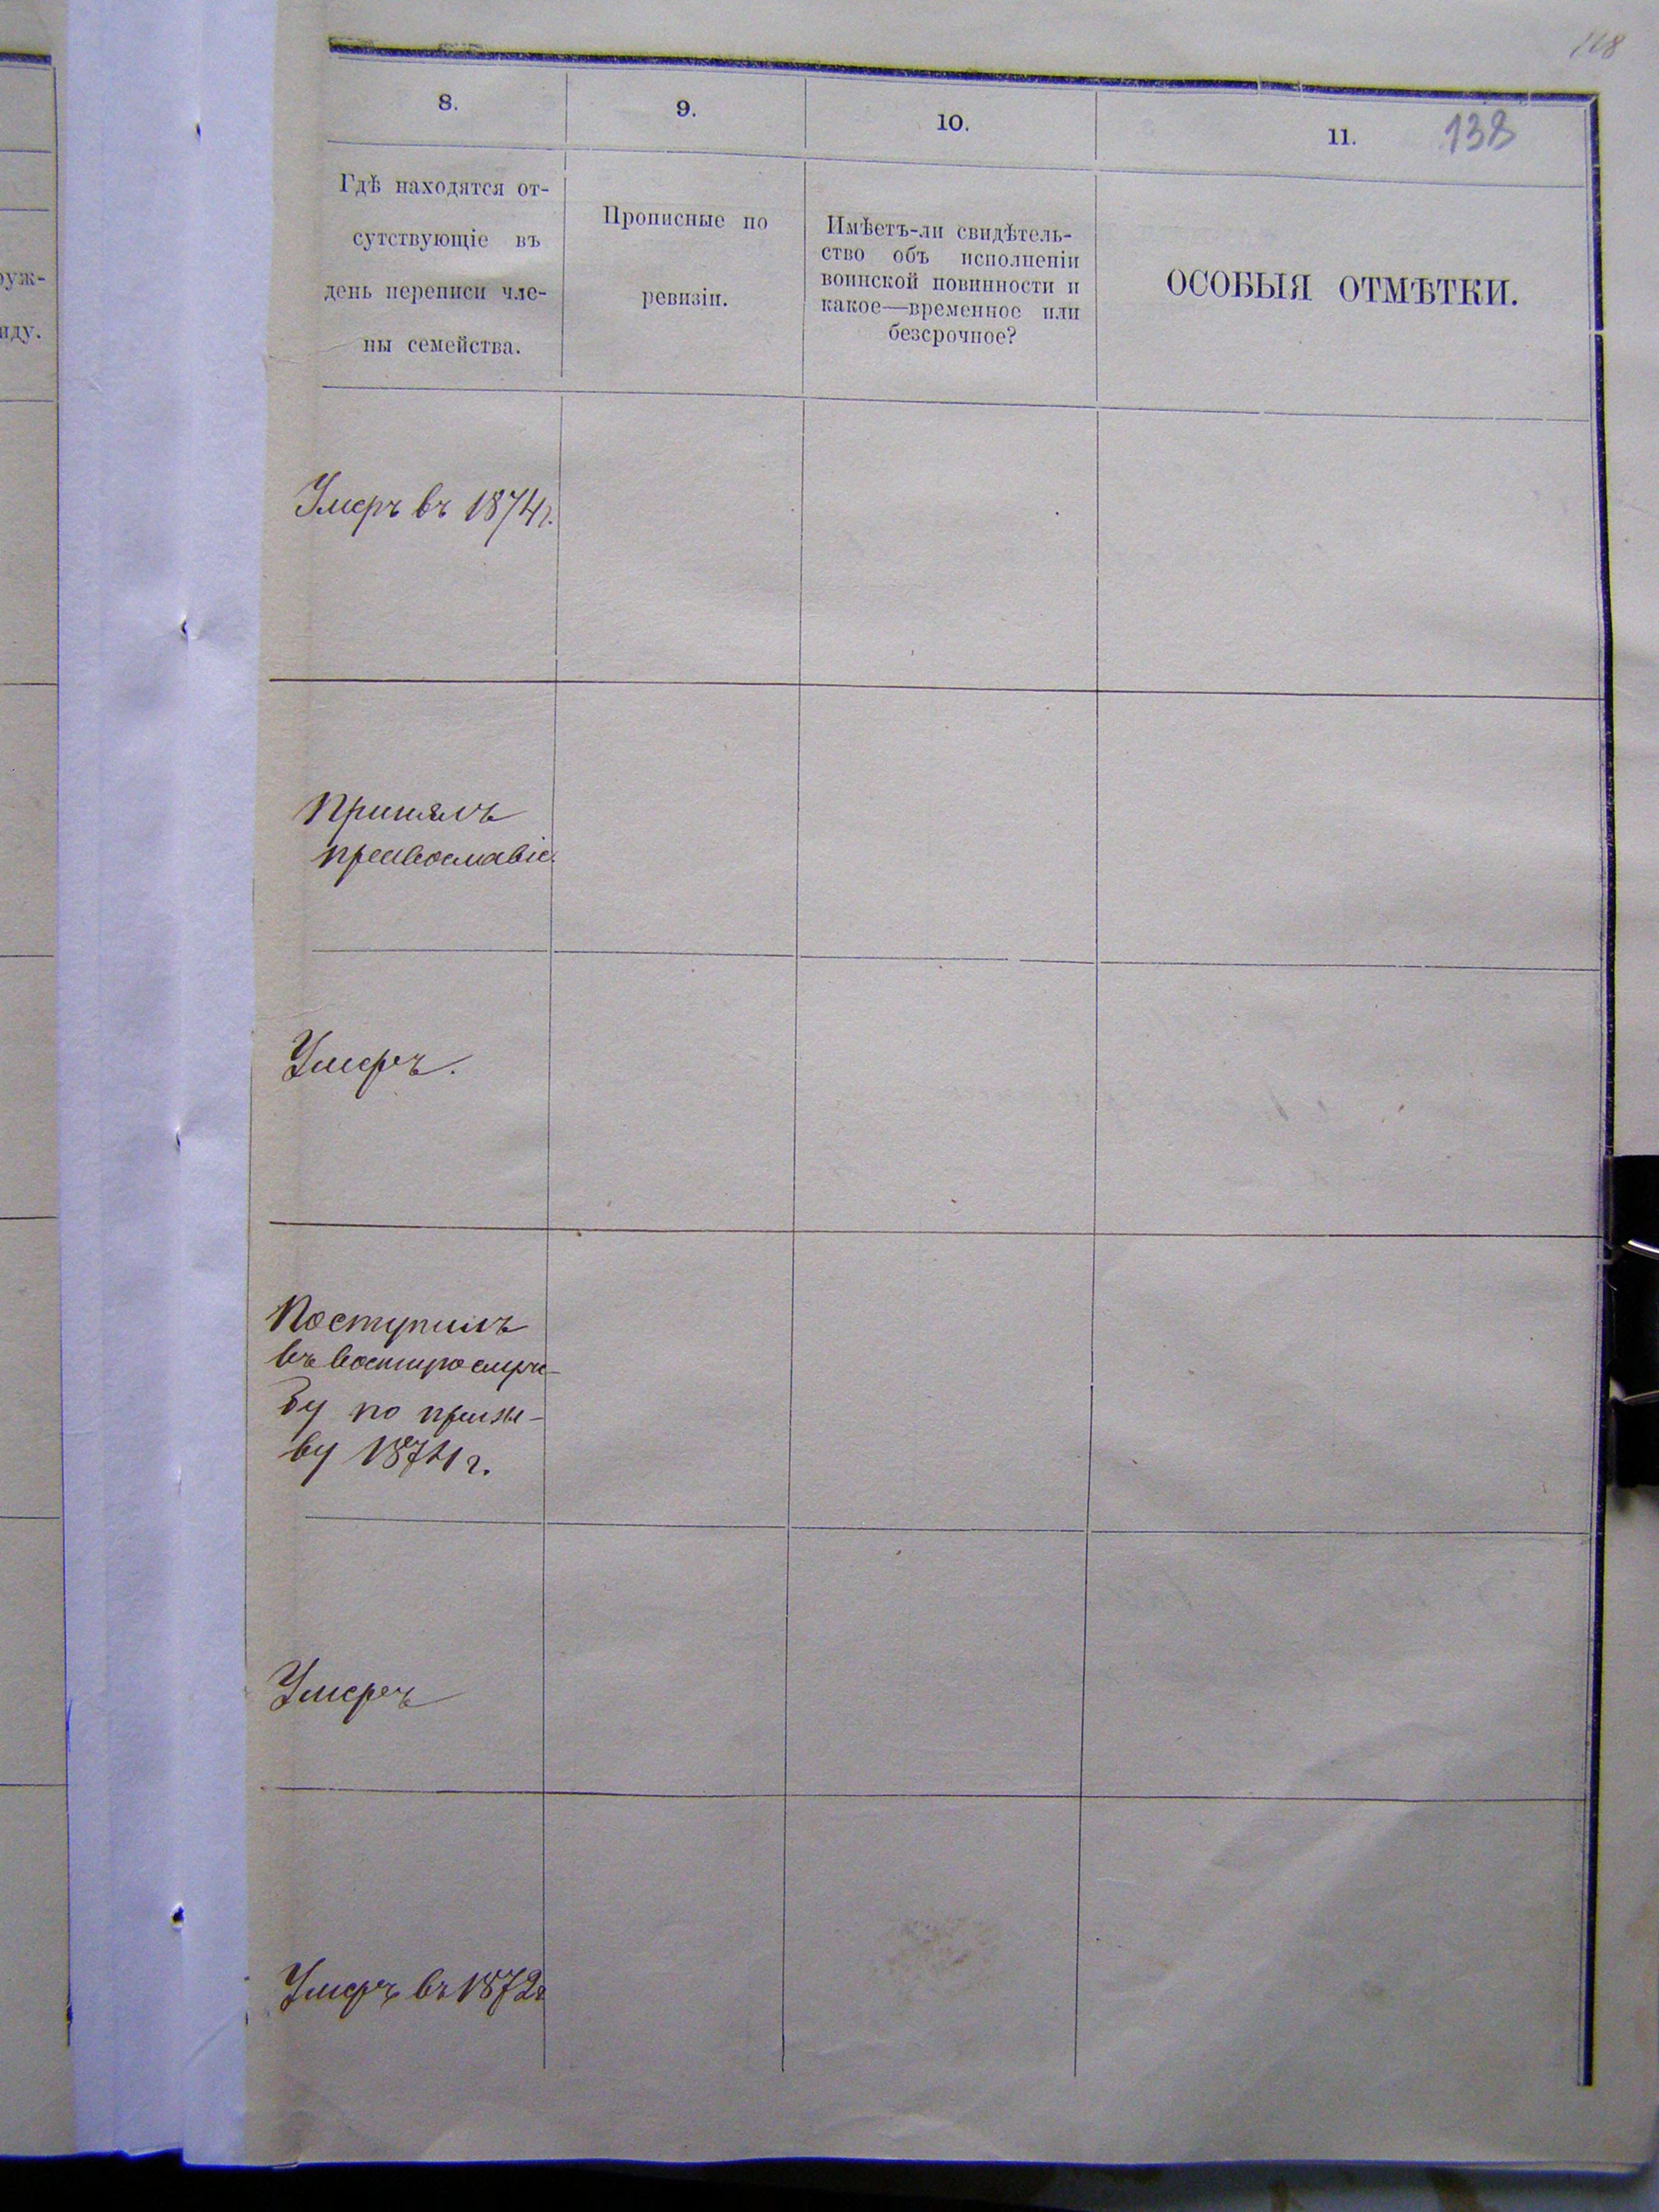 118
138
8.
9.
10.
11.
Гдѣ находятся от-
сутствующіе въ
день переписи чле-
ны семейства.
Прописные по
ревизіи.
Имѣетъ-ли свидѣтель-
ство объ исполненіи
воинской повинности и
какое—временное или
безсрочное?
ОСОБЫЯ ОТМѢТКИ.
руж-
иду.
Умеръ въ 1874 г.
Принялъ
православіе.
Умеръ.
Поступилъ
въ военную служ-
бу по призы-
ву 1874 г.
Умеръ
Умеръ въ 1872 г